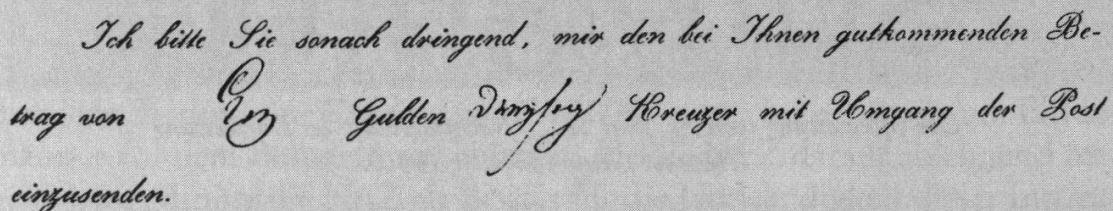 Ich bitte Sie sonach dringend, mir den bei Ihnen gutkommenden Be-
trag von Gulden Dreyßig Kreuzer mit Umgang der Post
einzusenden.